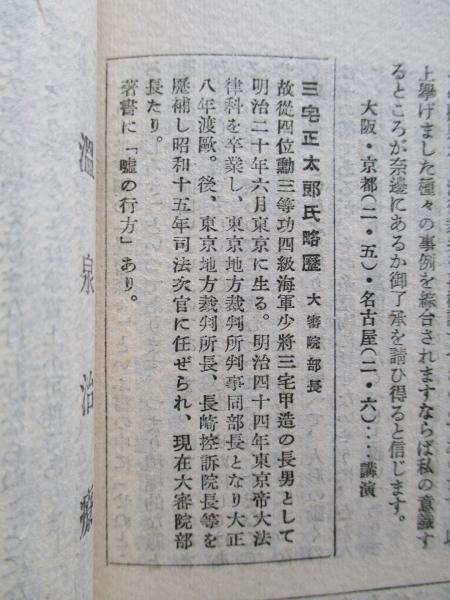 上擧げました種々の事例を綜合されますならば私の意識す
るところが奈邊にあるか御了承を請ひ得ると信じます。
大阪・京都(二・五)・名古屋(二・六)‥‥講演
三宅正太郞氏略歷 大審院部長
故從四位勳三等功四級海軍少將三宅甲造の長男として
明治二十年六月東京に生る。明治四十四年東京帝大法
律科を卒業し、東京地方裁判所判事同部長となり大正
八年渡歐。後、東京地方裁判所長、長崎控訴院長等を
歷補し昭和十五年司法次官に任ぜられ、現在大審院部
長たり。
著書に「嘘の行方」あり。
溫泉治療